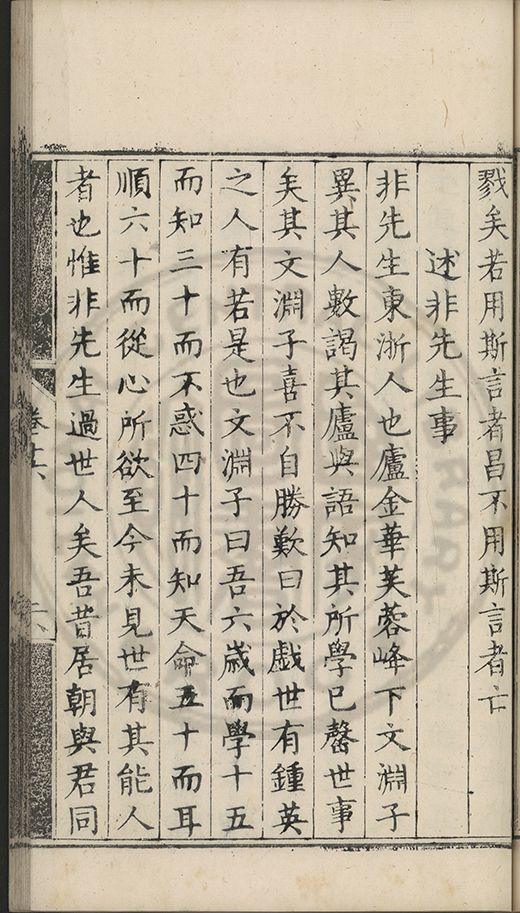 戮矣若用斯言者昌不用斯言者亡
述非先生事
非先生東浙人也廬金華芙蓉峰下文淵子
異其人數謁其廬與語知其所學已罄世事
矣其文淵子喜不自勝歎曰於戲世有鍾英
之人有若是也文淵子曰吾六歲而學十五
而知三十而不惑四十而知天命五十而耳
順六十而從心所欲至今未見世有其能人
者也惟非先生過世人矣吾昔居朝與君同